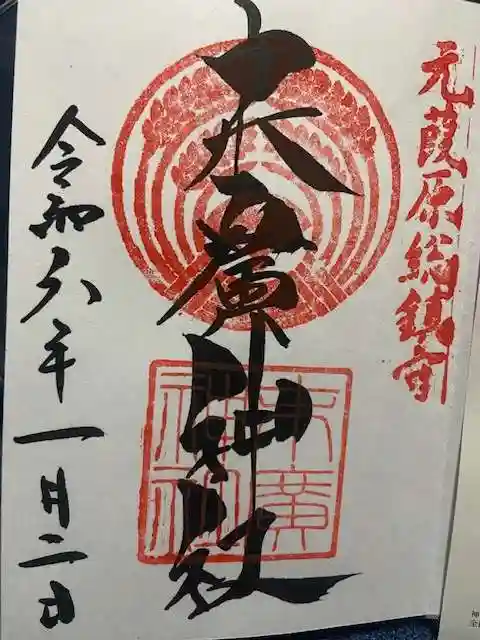 元葭原総鎮守
末廣神社
末廣
神社
令和六年一月二日